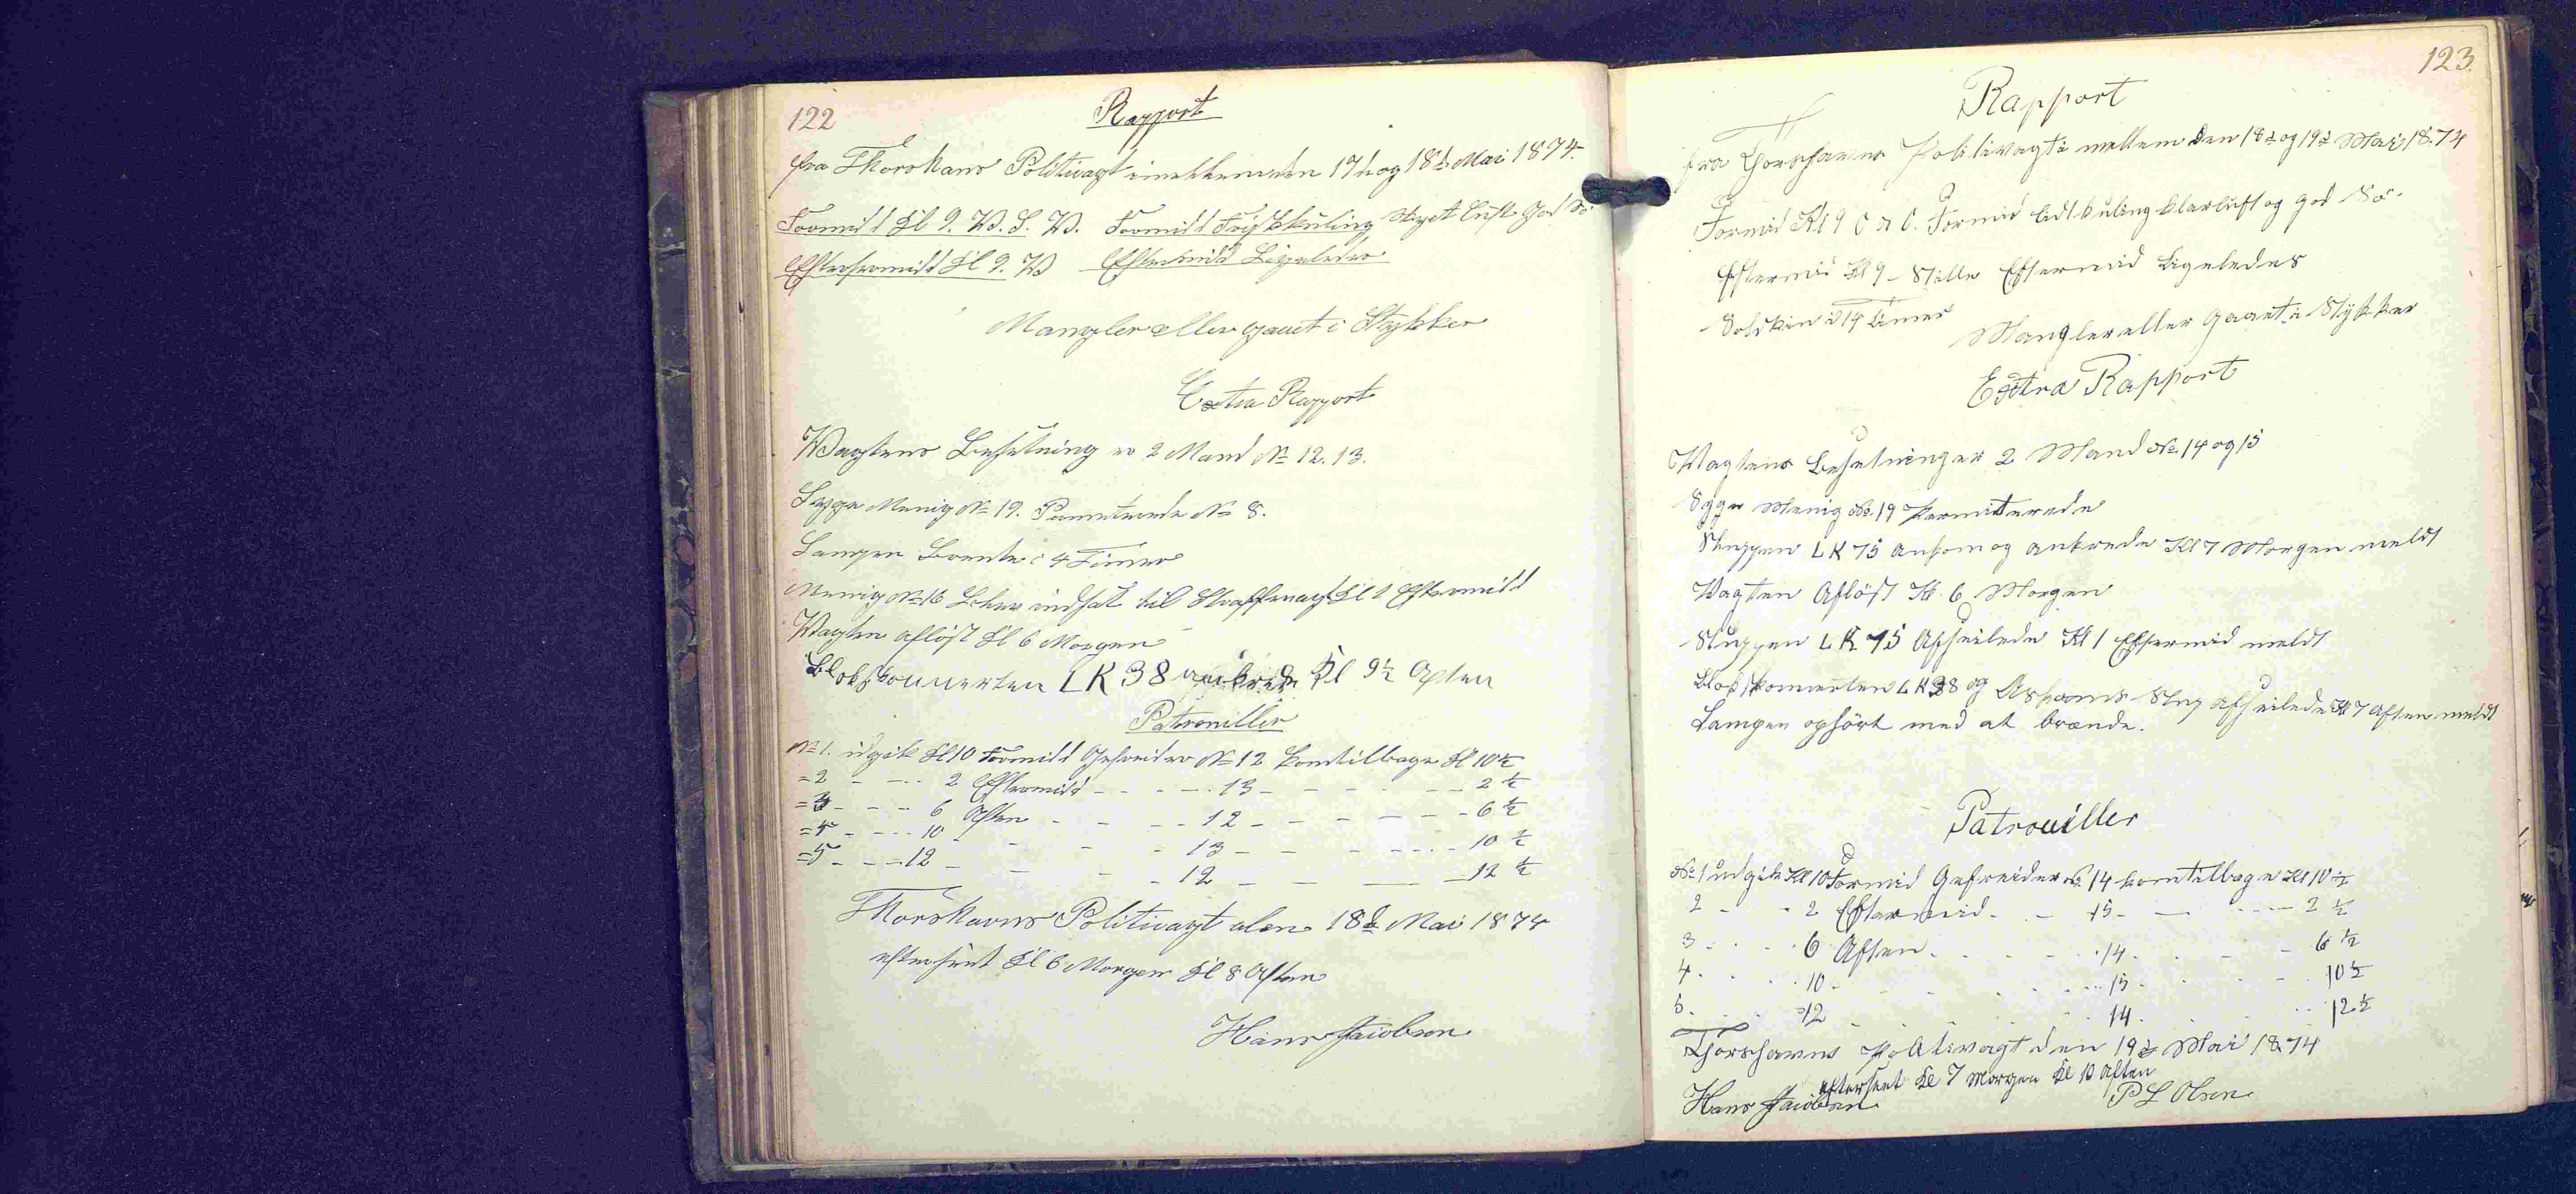 122
Rapport
fra Thorshavns Politivagt imellem den 17de og 18de Mai 1874.
Formidd Kl 9. V. S. V. Formidd Friskkuling Skyet Luft God Sö
Eftermidd Kl 9. V Eftermidd Ligeledes
Mangler eller gaaet i Stykker
Extra Rapport
Wagtens Besetning er 2 Mand No 12. 13.
Syge Menig No 19. Permiterede No 8.
Lampen Brente i 4 Timer
Menig No 16 blev indsat til Straffevagt Kl 2 Eftermidd
Wagten aflöst Kl 6 Morgen
Blokskonnerten LK 38 ankrede Kl 9½ Aften
Patrouiller
No 1. udgik Kl 10 Formidd Gefreider No 12 komtilbage Kl 10½
=2 - - - 2 Eftermidd - - - - 13 - - - - - 2½
=3 - - - 6 Aften - - - - 12 - - - - - 6½
=4 - - - 10 - - - 13 - - - - - 10½
=5 - - = 12 - - - - 12 - - - - 12½
Thorshavns Politivagt den 18de Mai 1874
efterseet Kl 6 Morgen Kl 8 Aften
Hans Jacobsen
123.
Rapport
fra Thorshavns Politivagt i mellem den 18de og 19de Mai 1874
Formid Kl 9 O N O. Formid Lidt kuling klarluft og god Sö.
Eftermid Kl 9 - Stille Eftermid Ligeledes
Solskin i 14 timer
Mangler eller Gaaet i Stykker
Extra Rapport
Wagtens Besetning er 2 Mand No. 14 og 15
Syge Menig No. 19 Permiterede
Sluppen LK 75 ankom og ankrede Kl 7 Morgen meldt
Wagten Aflöst Kl. 6 Morgen
Sluppen LK 75 Afseilede Kl 1 Eftermid meldt
Blokskonnerten LK 38 og Slup afseilede Kl 7 Aften meldt
Lampen ophört med at brænde.
Patrouiller
No 1 udgik Kl 10 Formid Gefreider No 14 komtilbage Kl 10½
2 - - 2 Eftermid. - 15 - - - - 2½
3 - - - 6 Aften. - - - 14. - - - 6½
4. - - 10 - - - - 15 - - - 10½
5. - - =12 - - - 14. - - - 12½
Thorshavns Politivagt den 19de Mai 1874
efterseet Kl 7 Morgen Kl 10 Aften
Hans Jacobsen P L Olsen